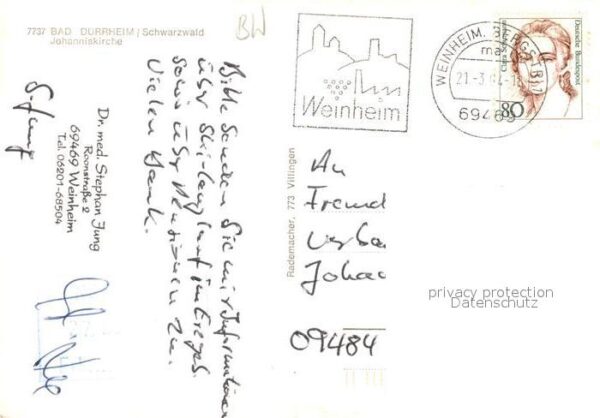 7737 BAD DÜRRHEIM / Schwarzwald
Johanniskirche
BW
Bitte senden Sie mir Informationen
über Skilanglauf im Erzgeb.
sowie über Pensionen zu.
Vielen Dank.
S. Jung
Dr. med. Stephan Jung
Roonstraße 2
69469 Weinheim
Tel. 06201-68504
Rademacher, 773 Villingen
Weinheim
WEINHEIM, BERGSTR
21.-3.
69469
Deutsche Bundespost
80
An
Fremd
Verba
Johan
09484
privacy protection
Datenschutz